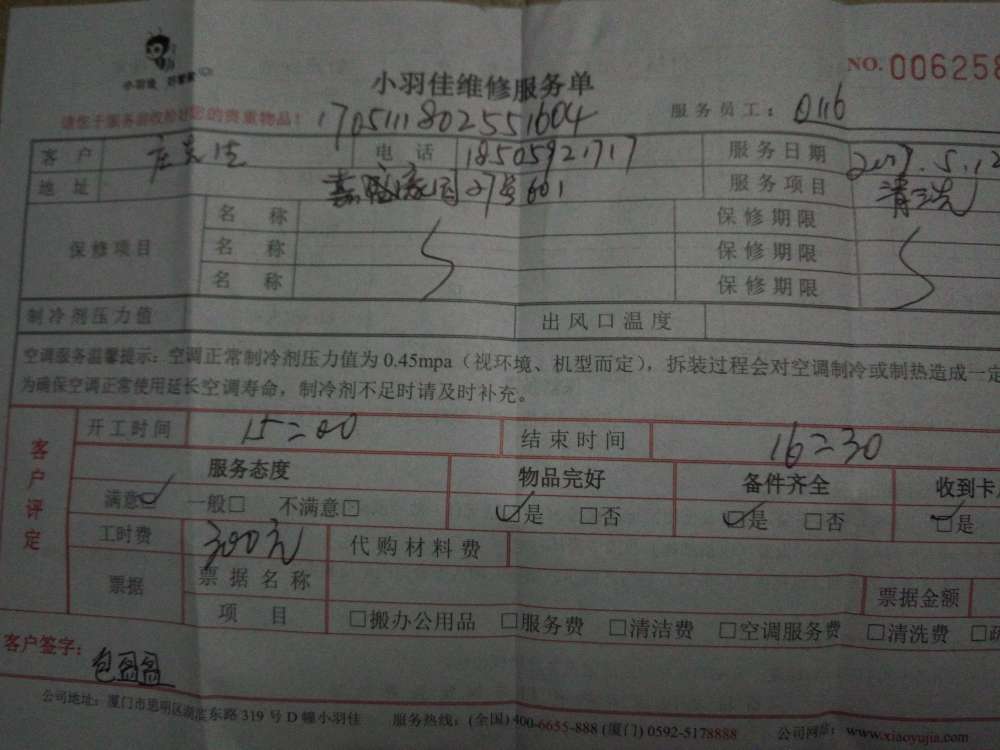 小羽佳
小羽佳维修服务单
NO. 006258
请您于服务前收拾好您的贵重物品!
1705111802551604
服务员工: 0116
客 户
电 话 18505921717
服务日期 2017.5.12
地 址 27号601
服务项目 清洗
保修项目
名 称 保修期限
名 称 保修期限
名 称 保修期限
制冷剂压力值 出风口温度
空调服务温馨提示: 空调正常制冷剂压力值为 0.45mpa (视环境、机型而定), 拆装过程会对空调制冷或制热造成一定
为确保空调正常使用延长空调寿命, 制冷剂不足时请及时补充。
客户评定
开工时间 15:00 结束时间 16:30
服务态度 物品完好 备件齐全 收到卡
满意□ 一般□ 不满意□ □是 □否 □是 □否 □是
工时费 300元 代购材料费
票据 票据名称 票据金额
项 目 □搬办公用品 □服务费 □清洁费 □空调服务费 □清洗费
客户签字:
公司地址: 厦门市思明区湖滨东路 319 号 D 幢小羽佳 服务热线: (全国) 400-6655-888 (厦门) 0592-5178888 公司网站: www.xiaoyujia.com